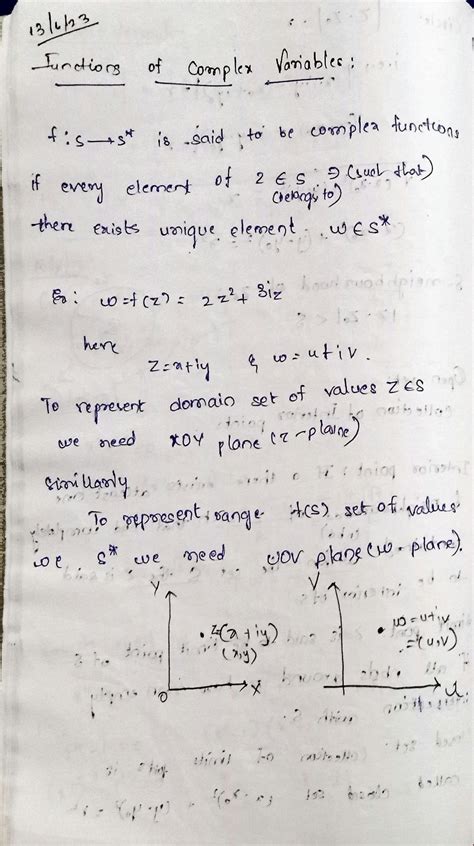 13/6/23
Functions of Complex Variables:
f: S→S* is said to be complex functions
if every element of z ∈ S ∋ (such that)
(belongs to)
there exists unique element w∈S*
Ex: w=f(z) = 2z²+3iz
here
z=x+iy & w=u+iv.
To represent domain set of values z∈S
we need XOY plane (z-plane)
similarly
To represent range f(S) set of values
w∈ S* we need UOV plane (w-plane).
Y V
z=(x+iy) w=u+iv
(x,y) =(u,v)
O X u